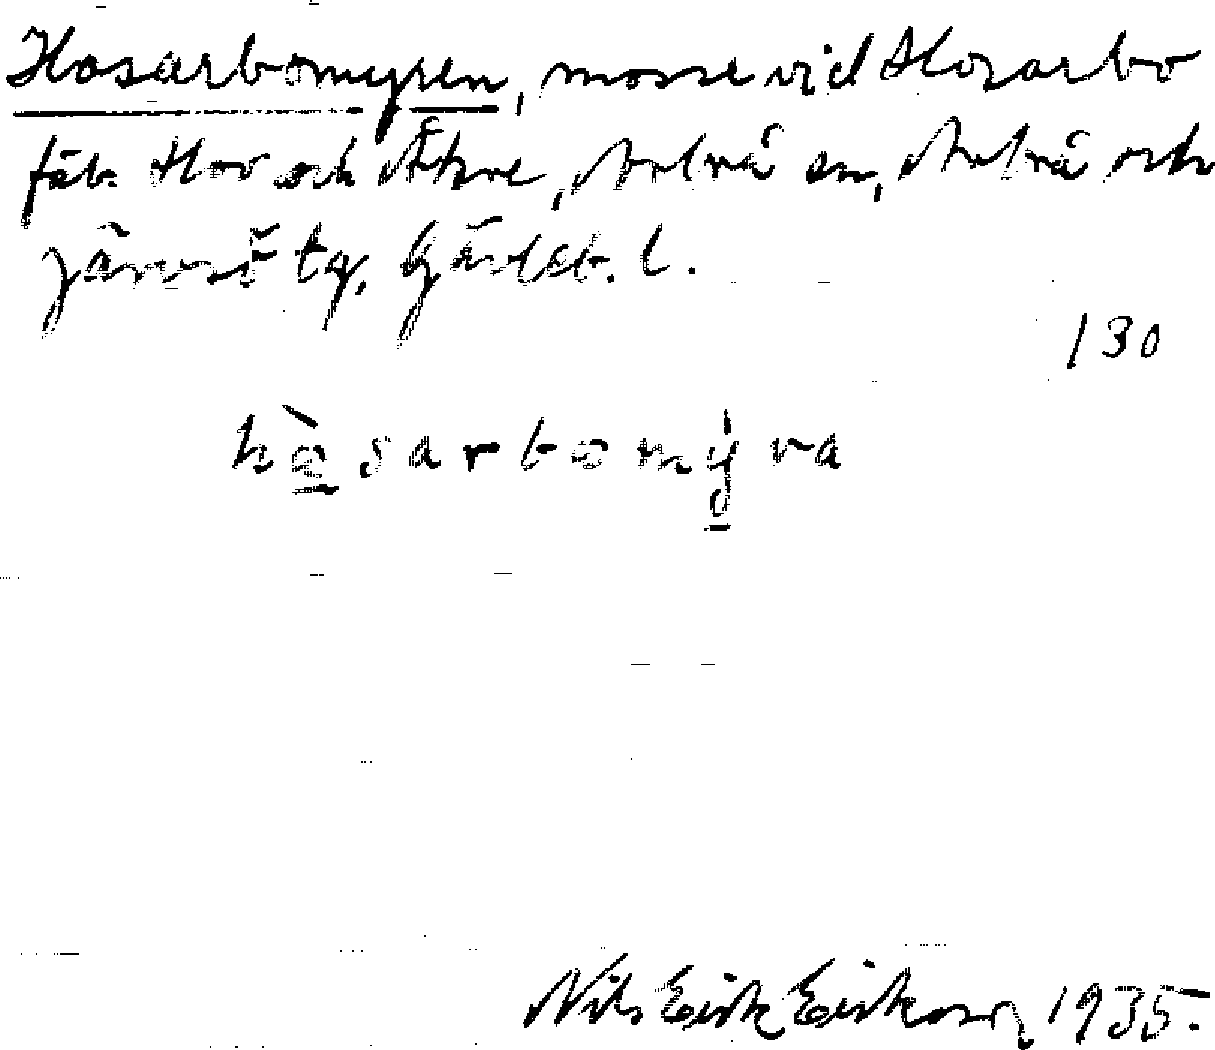 Hosarbomyren, mosse vid Hosarbo
fäb. Hov och Åkre, Arbrå sn, Arbrå och
Järvsö tg, Gävleb. l.
130
hòsarbomýra
Nils Erik Eriksson 1935.